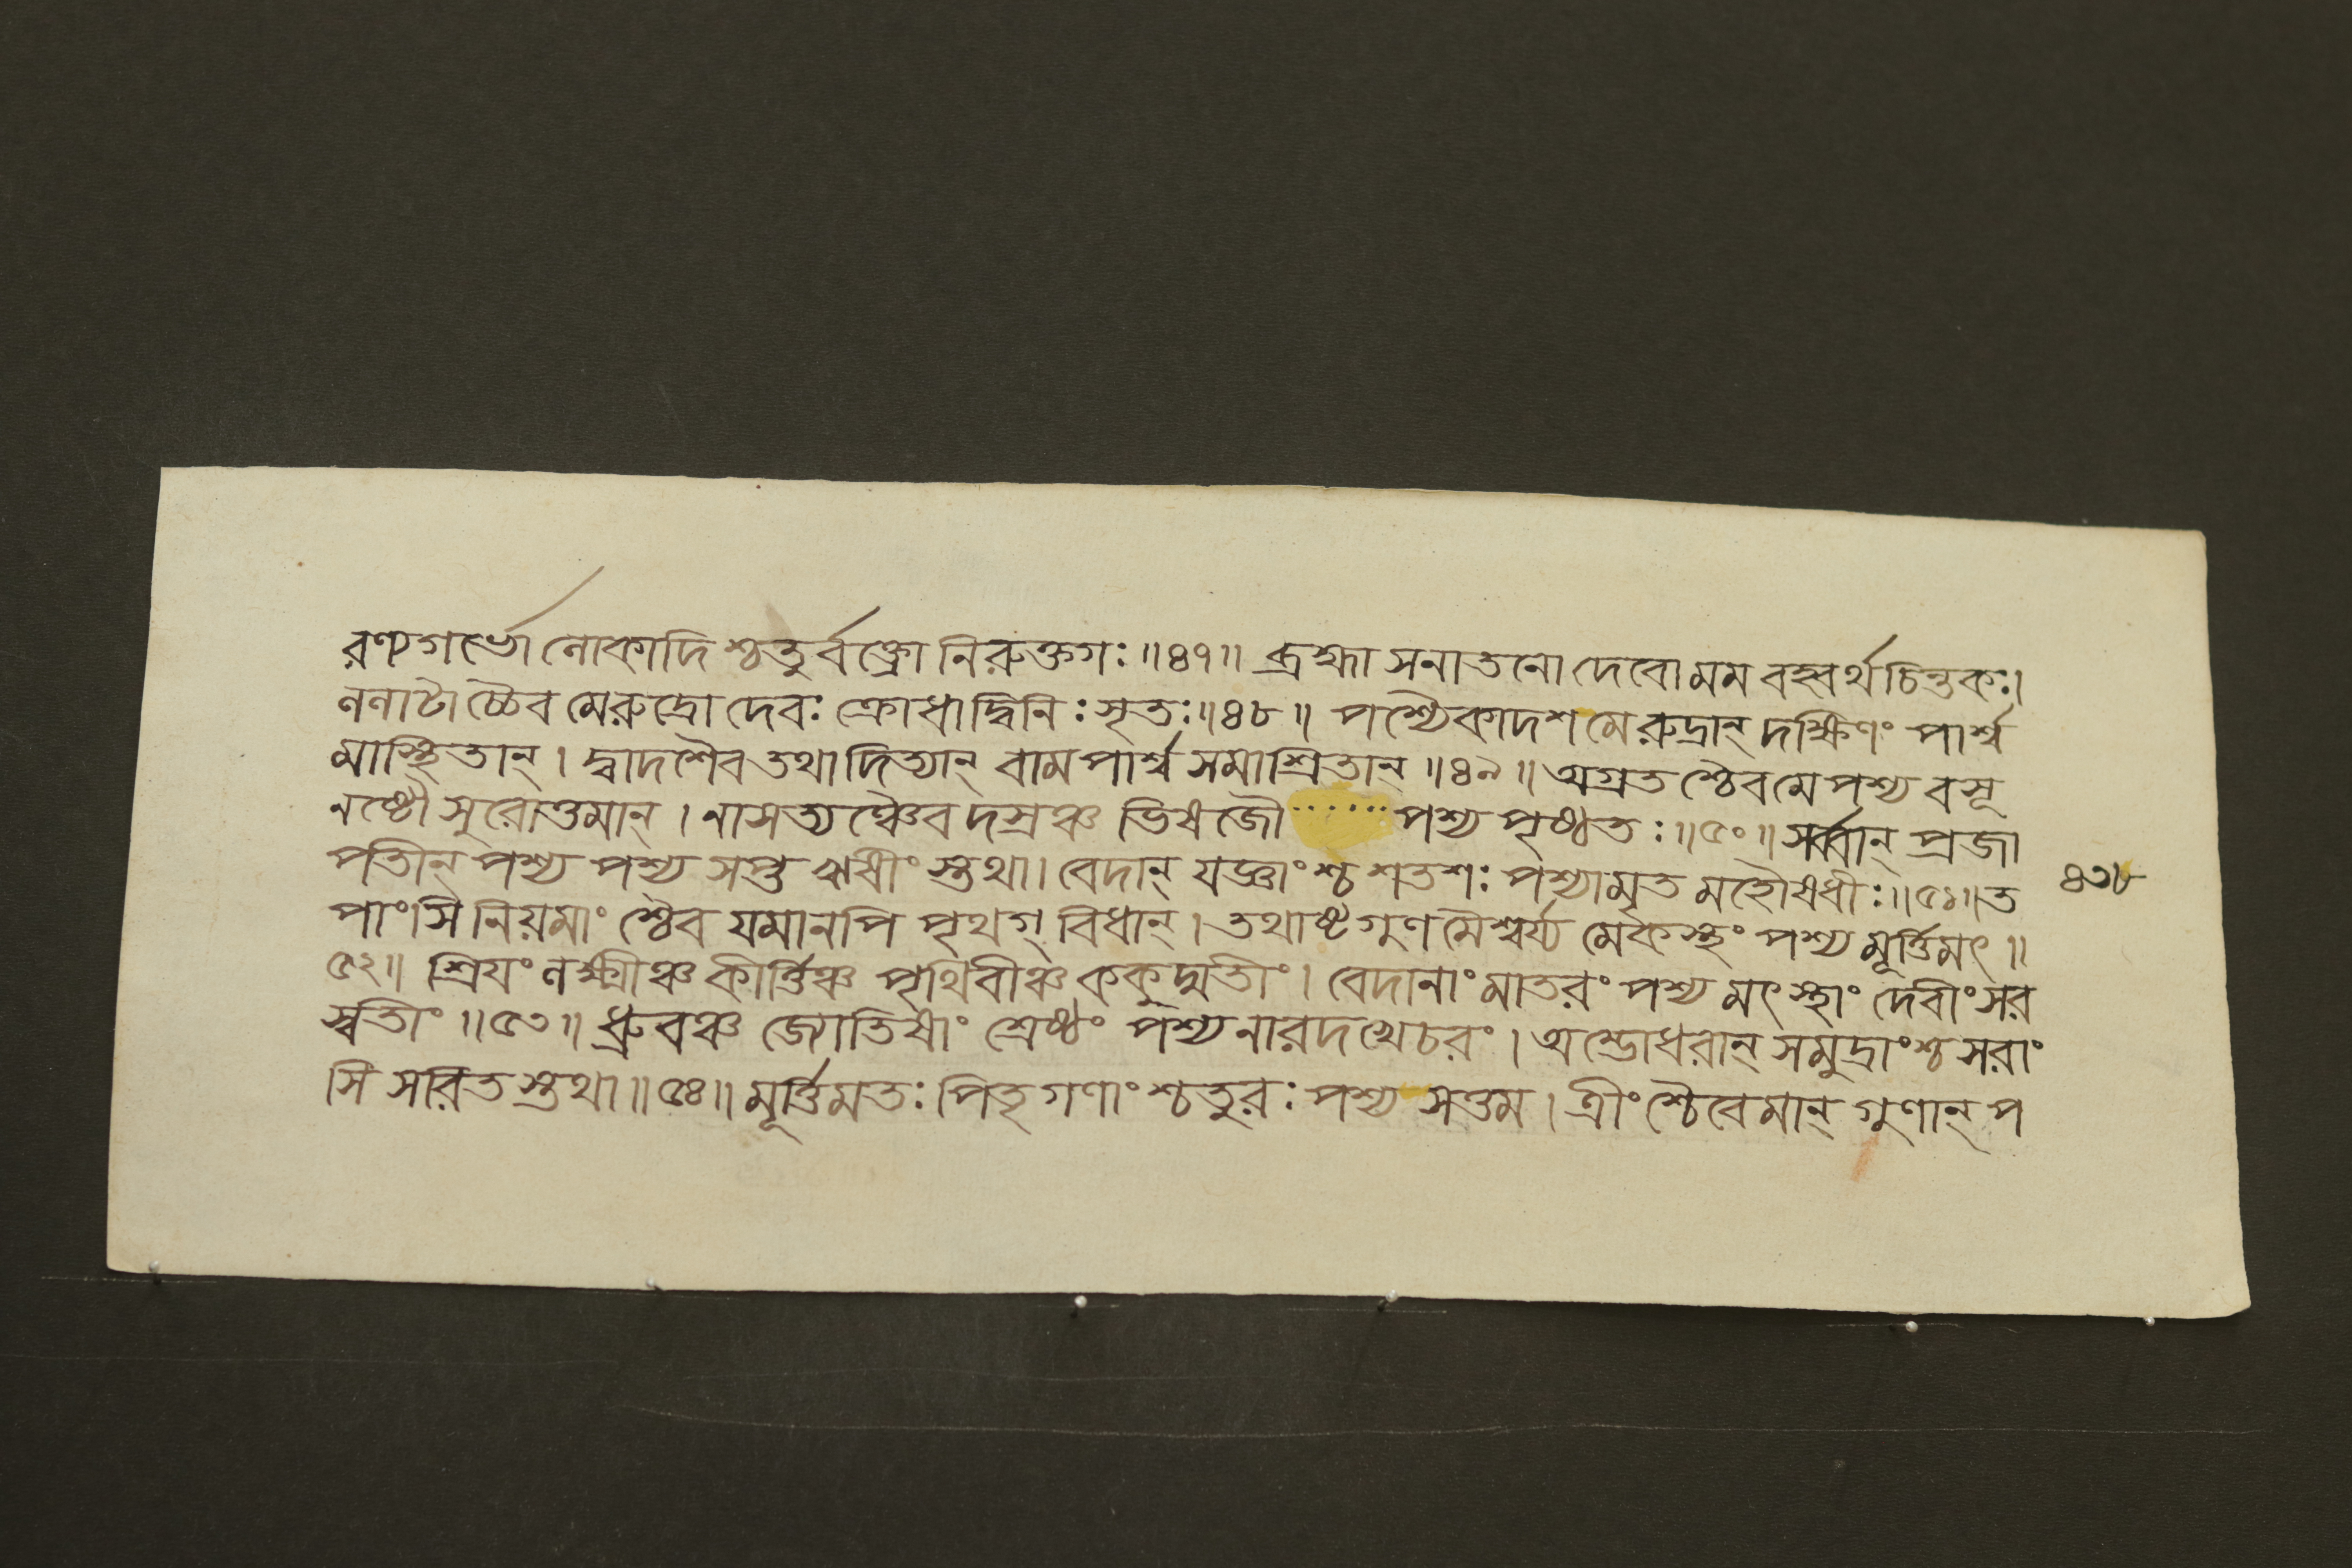 রণ্যগর্ভো লোকাদিশ্চতুর্বক্ত্রো নিরুক্তগঃ॥৪৭॥ ব্রহ্মা সনাতনো দেবো মম বহ্বর্থচিন্তকঃ।
ললাটাচ্চৈব মে রুদ্রো দেবঃ ক্রোধাদ্বিনিঃসৃতঃ॥৪৮॥ পশ্যৈকাদশ মে রুদ্রান্ দক্ষিণং পার্শ্ব
মাস্থিতান্। দ্বাদশৈব তথাদিত্যান্ বামপার্শ্বসমাশ্রিতান্॥৪৯॥ অগ্রতশ্চৈব মে পশ্য বসূ
নষ্টৌ সুরোত্তমান্। নাসত্যঞ্চৈব দস্রঞ্চ ভিষজৌ ...... পশ্য পৃষ্ঠতঃ॥৫০॥ সর্ব্বান্ প্রজা
পতীন্ পশ্য পশ্য সপ্ত ঋষীংস্তথা। বেদান্ যজ্ঞাংশ্চ শতশঃ পশ্যামৃতমহৌষধীঃ॥৫১॥ ত
৪৩৮
পাংসি নিয়মাংশ্চৈব যমানপি পৃথগ্‌বিধান্। তথাষ্টগুণমৈশ্বর্য্যমেকস্থং পশ্য মূর্ত্তিমৎ॥
৫২॥ শ্রিয়ং লক্ষ্মীঞ্চ কীর্ত্তিঞ্চ পৃথিবীঞ্চ ককুদ্মতীং। বেদানাং মাতরং পশ্য মৎস্থাং দেবীং সর
স্বতীং॥৫৩॥ ধ্রুবঞ্চ জ্যোতিষাং শ্রেষ্ঠং পশ্য নারদ খেচরং। অম্ভোধরান্ সমুদ্রাংশ্চ সরাং
সি সরিতস্তথা॥৫৪॥ মূর্ত্তিমতঃ পিতৃগণাংশ্চতুরঃ পশ্য সত্তম। ত্রীংশ্চৈবেমান্ গুণান্ প